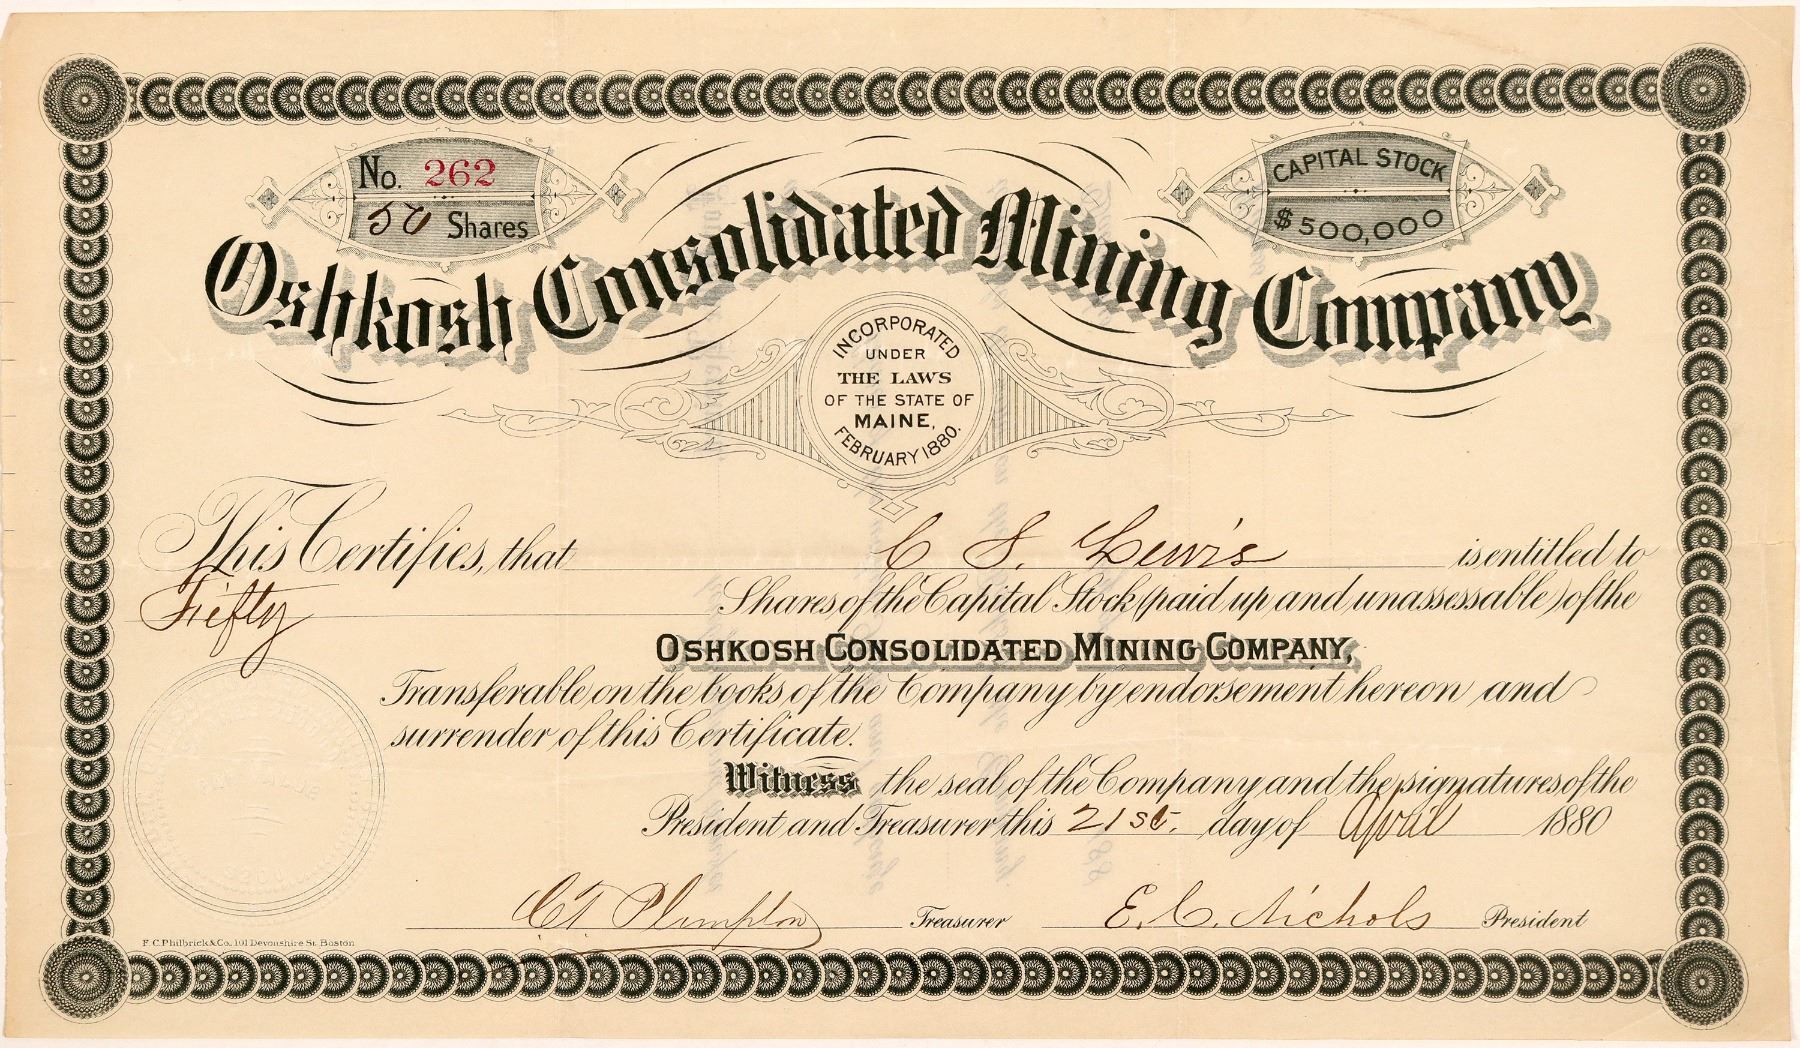 No. 262
50 Shares
CAPITAL STOCK
$500,000
Oshkosh Consolidated Mining Company
INCORPORATED
UNDER
THE LAWS
OF THE STATE OF
MAINE,
FEBRUARY 1880.
This Certifies, that C S. Lewis is entitled to
Fifty Shares of the Capital Stock (paid up and unassessable) of the
OSHKOSH CONSOLIDATED MINING COMPANY,
Transferable on the books of the Company by endorsement hereon and
surrender of this Certificate.
Witness the seal of the Company and the signatures of the
President and Treasurer this 21st. day of April 1880
C T Plimpton Treasurer E. C. Nichols President
F. C. Philbrick & Co. 101 Devonshire St. Boston